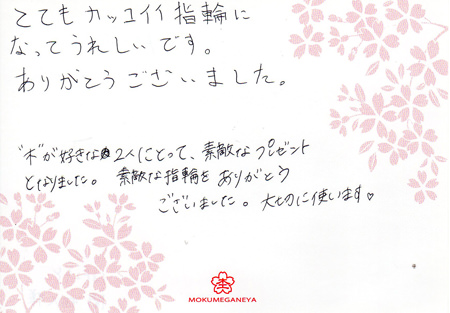 とてもカッコイイ指輪に
なってうれしいです。
ありがとうございました。
"木"が好きな2人にとって、素敵なプレゼント
となりました。素敵な指輪をありがとう
ございました。大切に使います♡
杢
MOKUMEGANEYA